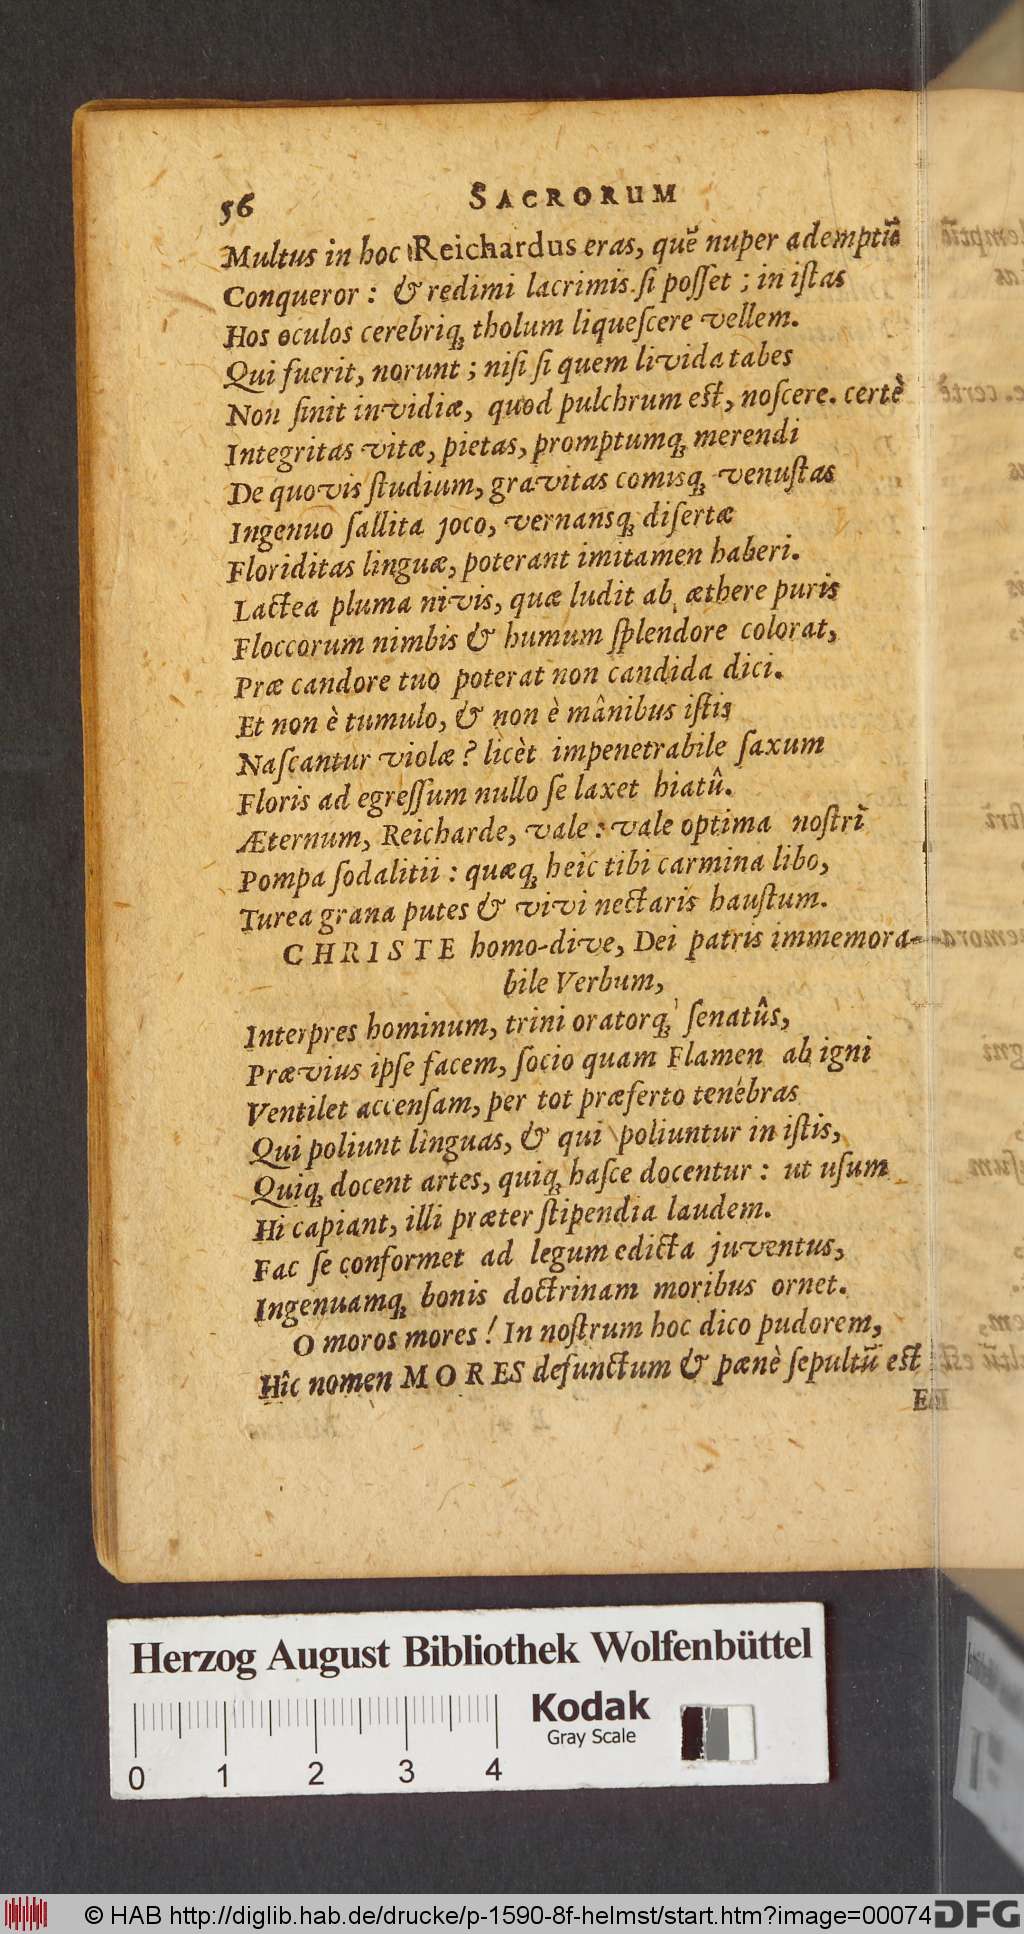 56 SACRORUM
Multus in hoc Reichardus eras, quē nuper ademptū
Conqueror : & redimi lacrimis si posset ; in istas
Hos oculos cerebriq; tholum liquescere vellem.
Qui fuerit, norunt ; nisi si quem livida tabes
Non sinit invidiæ, quod pulchrum est, noscere. certè
Integritas vitæ, pietas, promptumq; merendi
De quovis studium, gravitas comisq; venustas
Ingenuo sallita joco, vernansq; disertæ
Floriditas linguæ, poterant imitamen haberi.
Lactea pluma nivis, quæ ludit ab æthere puris
Floccorum nimbis & humum splendore colorat,
Præ candore tuo poterat non candida dici.
Et non è tumulo, & non è mânibus istis
Nascantur violæ ? licèt impenetrabile saxum
Floris ad egressum nullo se laxet hiatû.
Æternum, Reicharde, vale : vale optima nostrī
Pompa sodalitii : quæq; heic tibi carmina libo,
Turea grana putes & vivi nectaris haustum.
CHRISTE homo-dive, Dei patris immemora-
bile Verbum,
Interpres hominum, trini oratorq; senatûs,
Prævius ipse facem, socio quam Flamen ab igni
Ventilet accensam, per tot præferto tenebras
Qui poliunt linguas, & qui poliuntur in istis,
Quiq; docent artes, quiq; hasce docentur : ut usum
Hi capiant, illi præter stipendia laudem.
Fac se conformet ad legum edicta juventus,
Ingenuamq; bonis doctrinam moribus ornet.
O moros mores ! In nostrum hoc dico pudorem,
Hîc nomen MORES defunctum & pænè sepultū est
Herzog August Bibliothek Wolfenbüttel
Kodak
Gray Scale
0 1 2 3 4
© HAB http://diglib.hab.de/drucke/p-1590-8f-helmst/start.htm?image=00074
DFG